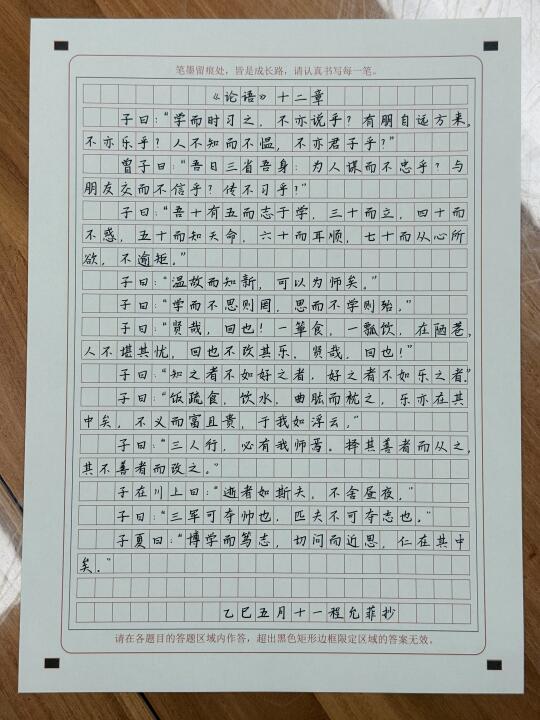 笔墨留痕处，皆是成长路，请认真书写每一笔。
《论语》十二章
子曰：“学而时习之，不亦说乎？有朋自远方来，
不亦乐乎？人不知而不愠，不亦君子乎？”
曾子曰：“吾日三省吾身：为人谋而不忠乎？与
朋友交而不信乎？传不习乎？”
子曰：“吾十有五而志于学，三十而立，四十而
不惑，五十而知天命，六十而耳顺，七十而从心所
欲，不逾矩。”
子曰：“温故而知新，可以为师矣。”
子曰：“学而不思则罔，思而不学则殆。”
子曰：“贤哉，回也！一箪食，一瓢饮，在陋巷，
人不堪其忧，回也不改其乐，贤哉，回也！”
子曰：“知之者不如好之者，好之者不如乐之者。”
子曰：“饭疏食，饮水，曲肱而枕之，乐亦在其
中矣，不义而富且贵，于我如浮云。”
子曰：“三人行，必有我师焉。择其善者而从之，
其不善者而改之。”
子在川上曰：“逝者如斯夫，不舍昼夜。”
子曰：“三军可夺帅也，匹夫不可夺志也。”
子夏曰：“博学而笃志，切问而近思，仁在其中
矣。”
乙巳五月十一程允菲抄
请在各题目的答题区域内作答，超出黑色矩形边框限定区域的答案无效。